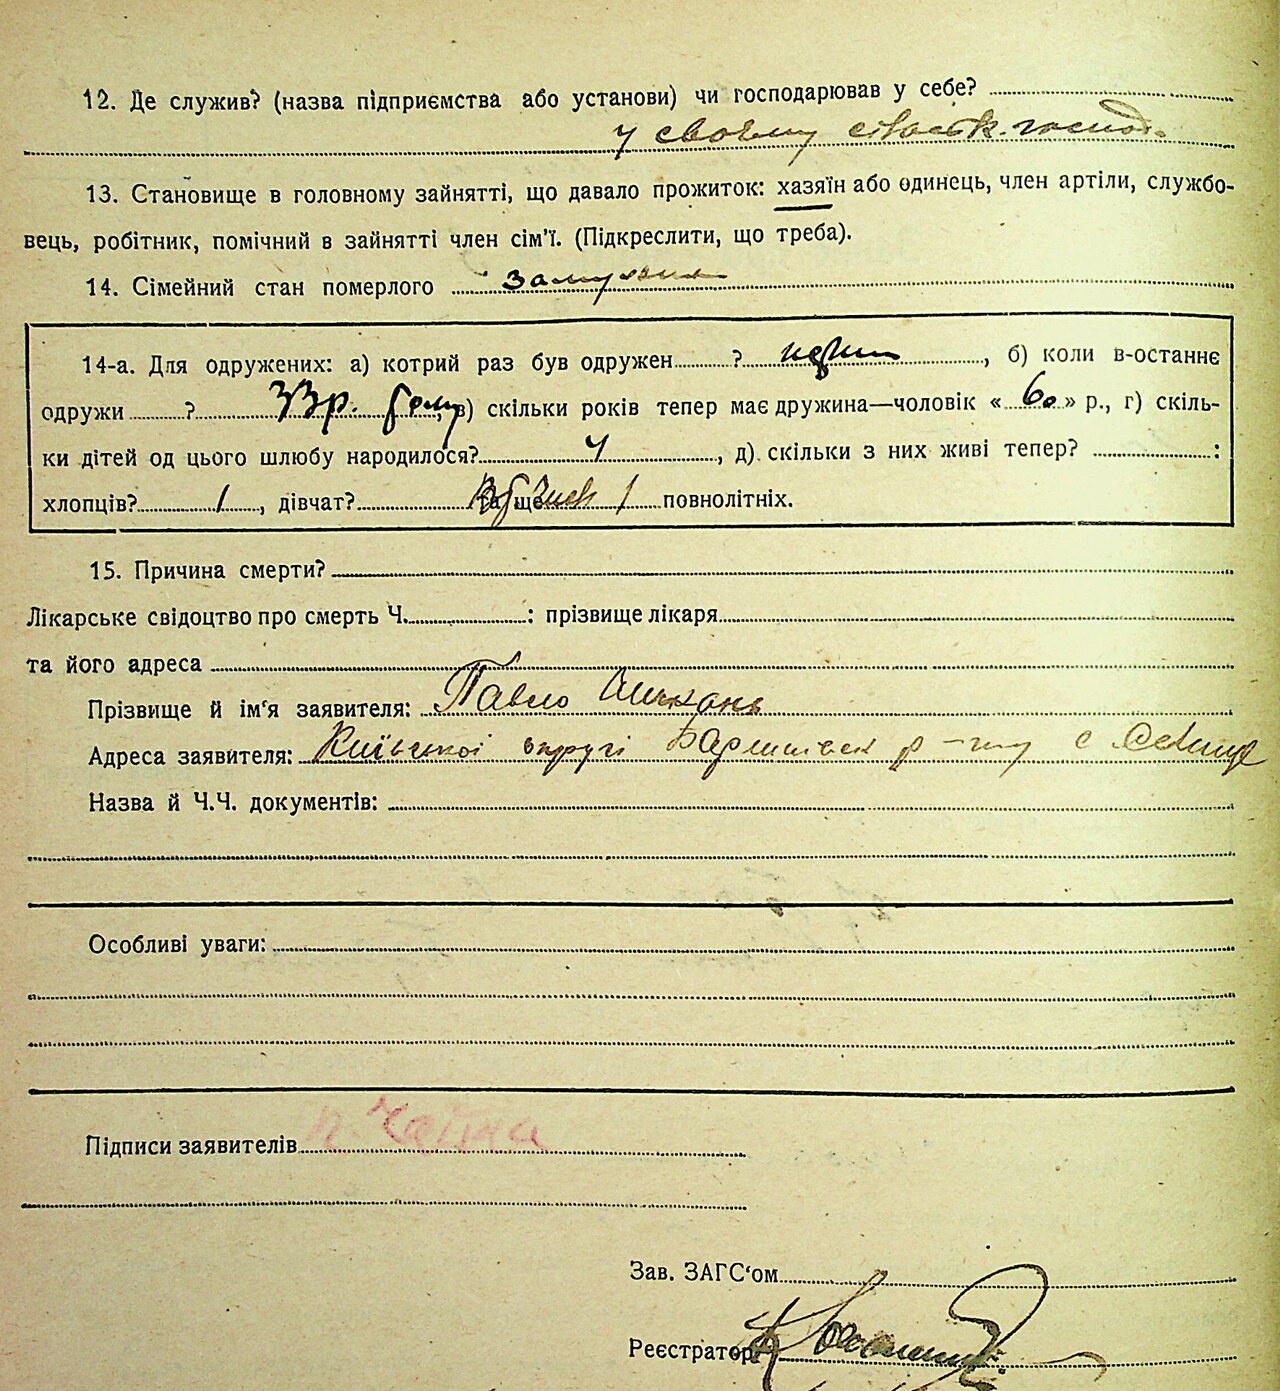 12. Де служив? (назва підприємства або установи) чи господарював у себе?
у своєму сільськ. господ.
13. Становище в головному зайнятті, що давало прожиток: хазяїн або одинець, член артіли, службо-
вець, робітник, помічний в зайнятті член сім'ї. (Підкреслити, що треба).
14. Сімейний стан померлого замужня
14-а. Для одружених: а) котрий раз був одружен ? перший, б) коли в-останнє
одружи ? 33 р. тому, в) скільки років тепер має дружина—чоловік « 60 » р., г) скіль-
ки дітей од цього шлюбу народилося? 4, д) скільки з них живі тепер? :
хлопців? 1, дівчат? та ще 1 повнолітніх.
15. Причина смерти?
Лікарське свідоцтво про смерть Ч. : прізвище лікаря
та його адреса
Прізвище й ім'я заявителя: Павло
Адреса заявителя: Київської округи Баришівськ р-ну с Селище
Назва й Ч.Ч. документів:
Особливі уваги:
Підписи заявителів П. Чайка
Зав. ЗАГС'ом
Реєстратор